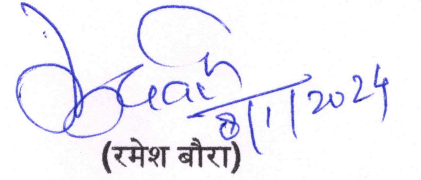 8/1/2024
(रमेश बौरा)